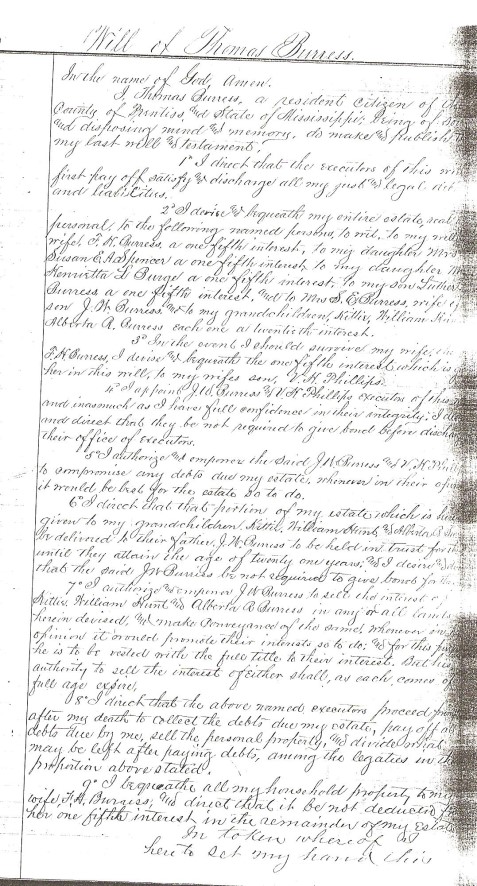 Will of Thomas Burress.
In the name of God, Amen.
I, Thomas Burress, a resident citizen of
County of Prentiss, and State of Mississippi, being of
and disposing mind & memory, do make & publish
my last will & testament.
1st I direct that the executors of this
first pay off satisfy & discharge all my just & legal
and liabilities.
2d I devise & bequeath my entire estate, real
personal, to the following named persons, to wit, to my
wife, F. H. Burress, a one fifth interest, to my daughter Mrs
Susan E. A. Spencer a one fifth interest, to my daughter
Henrietta L. Burge a one fifth interest, to my son Luther
Burress a one fifth interest, and to Mrs S. E. Burress, wife
son J. W. Burress, & to my grandchildren, Kittie, William
Alberta R. Burress each one a twentieth interest.
3d In the event I should survive my wife,
F. H. Burress, I devise & bequeath the one fifth interest which is
her in this will, to my wifes son, V. H. Phillips.
4th I appoint J. W. Burress & V. H. Phillips executors of this
and inasmuch as I have full confidence in their integrity, I
and direct that they be not required to give bond before
their office of executors.
5th I authorize and empower the said J. W. Burress & V. H.
to compromise any debts due my estate, whenever in their
it would be best for the estate so to do.
6th I direct that that portion of my estate which is
given to my grandchildren, Kittie, William Hunt, & Alberta
be delivered to their father, J. W. Burress to be held in trust for
until they attain the age of twenty one years; & I desire &
that the said J W Burress be not required to give bond for
7th I authorize & empower J. W. Burress to sell the interest of
Kittie, William Hunt & Alberta R Burress in any or all lands
herein devised, and make conveyance of the same, whenever in
opinion it would promote their interests so to do; and for this
he is to be vested with the full title to their interest. But his
authority to sell the interest of either shall, as each comes of
full age expire.
8th I direct that the above named executors proceed
after my death to collect the debts due my estate, pay off
debts due by me, sell the personal property, and divide what
may be left after paying debts, among the legatees in the
proportion above stated.
9th I bequeathe all my household property to my
wife F. H. Burress, and direct that it be not deducted
her one fifth interest in the remainder of my Estate
In token where of I
here to set my hand this